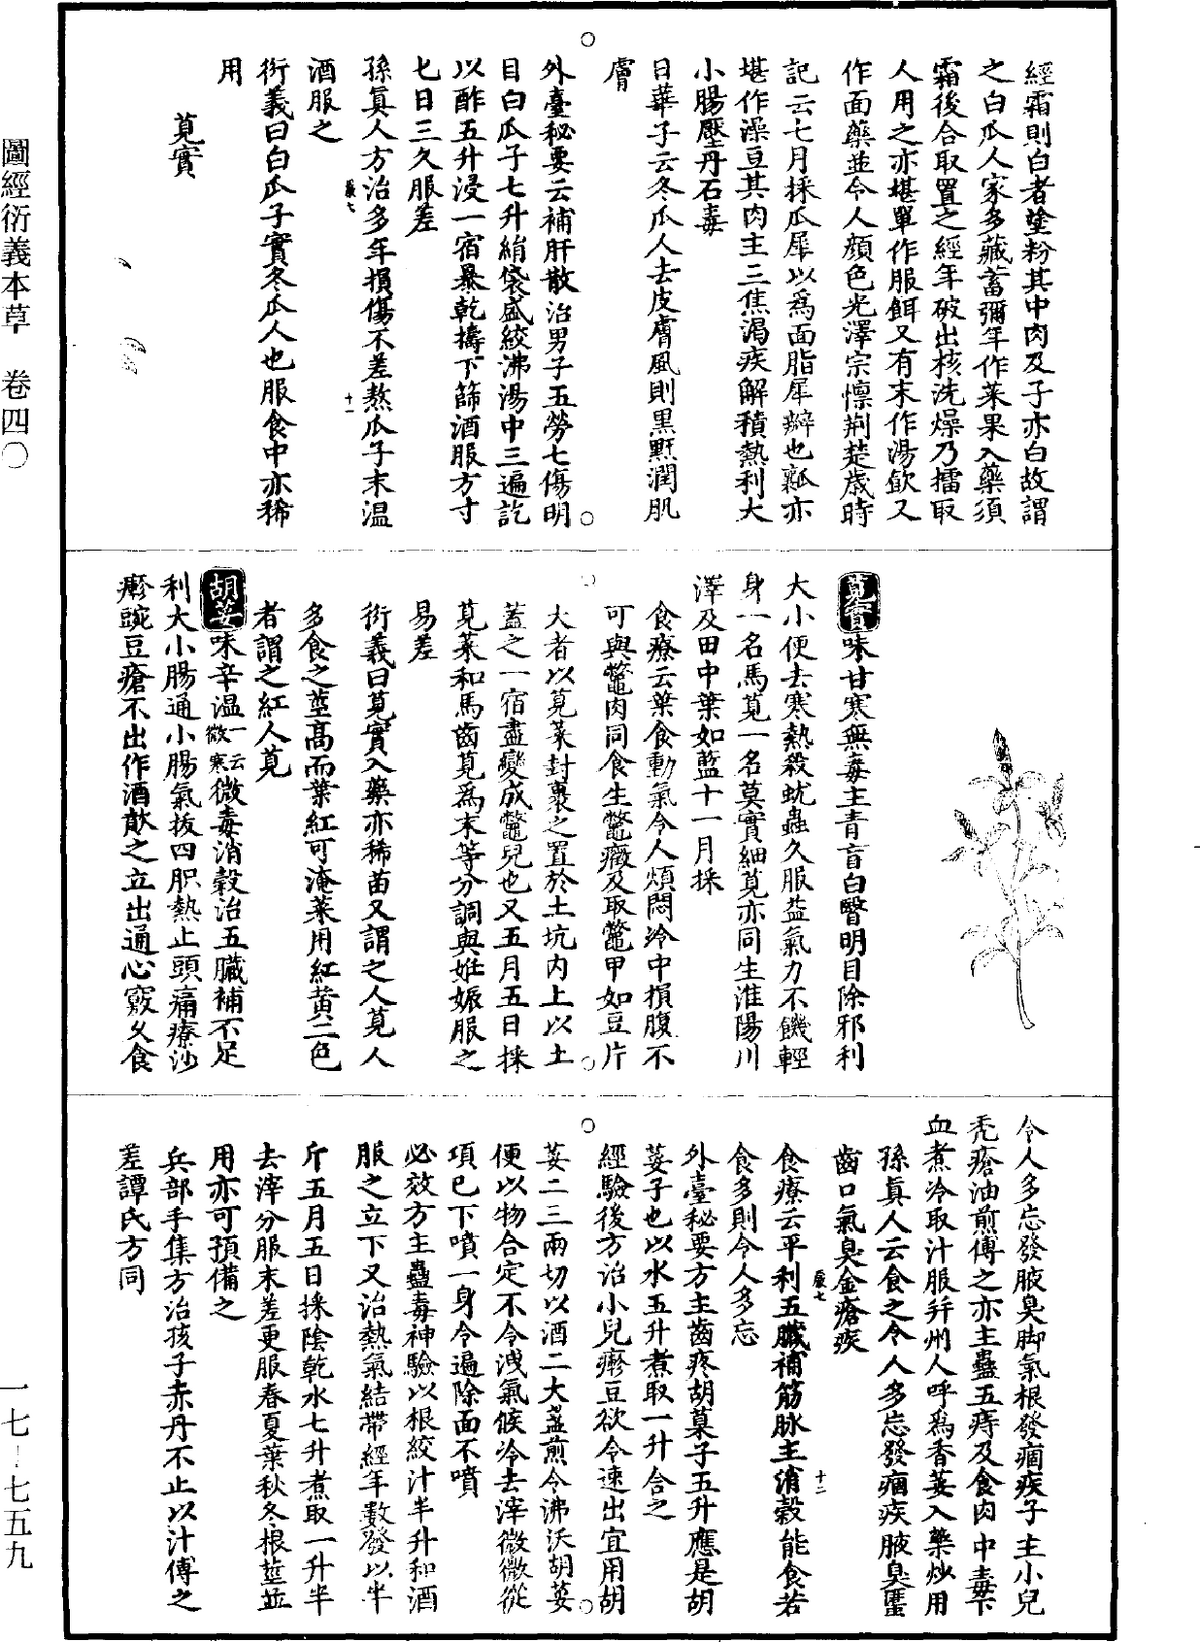 圖經衍義本草　卷四〇
經霜則白者塗粉其中肉及子亦白故謂
之白瓜人家多藏蓄彌年作菜果入藥須
霜後合取置之經年破出核洗燥乃擂取
人用之亦堪單作服餌又有末作湯飲又
作面藥並令人顔色光澤宗懍荆楚歲時
記云七月採瓜犀以爲面脂犀瓣也瓤亦
堪作澡豆其肉主三焦渴疾解積熱利大
小腸壓丹石毒
日華子云冬瓜人去皮膚風則黑䵟潤肌
膚
外臺秘要云補肝散治男子五勞七傷明
目白瓜子七升絹袋盛絞沸湯中三遍訖
以酢五升浸一宿暴乾擣下篩酒服方寸
匕日三久服差
孫眞人方治多年損傷不差熬瓜子末温
酒服之
衍義曰白瓜子實冬瓜人也服食中亦稀
用
莧實
莧實味甘寒無毒主青盲白瞖明目除邪利
大小便去寒熱殺蚘蟲久服益氣力不饑輕
身一名馬莧一名莫實細莧亦同生淮陽川
澤及田中葉如藍十一月採
食療云葉食動氣令人煩悶冷中損腹不
可與鼈肉同食生鼈癥及取鼈甲如豆片
大者以莧菜封裹之置於土坑内上以土
蓋之一宿盡變成鼈兒也又五月五日採
莧菜和馬齒莧爲末等分調與姙娠服之
易差
衍義曰莧實入藥亦稀苗又謂之人莧人
多食之莖高而葉紅可淹菜用紅黄二色
者謂之紅人莧
胡荽味辛温一云微寒微毒消穀治五臟補不足
利大小腸通小腸氣拔四肢熱止頭痛療沙
瘮豌豆瘡不出作酒歕之立出通心竅久食
令人多忘發腋臭脚氣根發痼疾子主小兒
禿瘡油煎傅之亦主蠱五痔及食肉中毒下
血煮冷取汁服并州人呼爲香荽入藥炒用
孫眞人云食之令人多忘發痼疾腋臭䘌
齒口氣臭金瘡疾
食療云平利五臟補筋脉主消穀能食若
食多則令人多忘
外臺秘要方主齒疼胡菓子五升應是胡
荽子也以水五升煮取一升含之
經驗後方治小兒瘮豆欲令速出宜用胡
荽二三兩切以酒二大盞煎令沸沃胡荽
便以物合定不令洩氣候冷去滓微微從
項已下噴一身令遍除面不噴
必效方主蠱毒神驗以根絞汁半升和酒
服之立下又治熱氣結帶經年數發以半
斤五月五日採陰乾水七升煮取一升半
去滓分服末差更服春夏葉秋冬根莖並
用亦可預備之
兵部手集方治孩子赤丹不止以汁傅之
差譚氏方同
一七-七五九